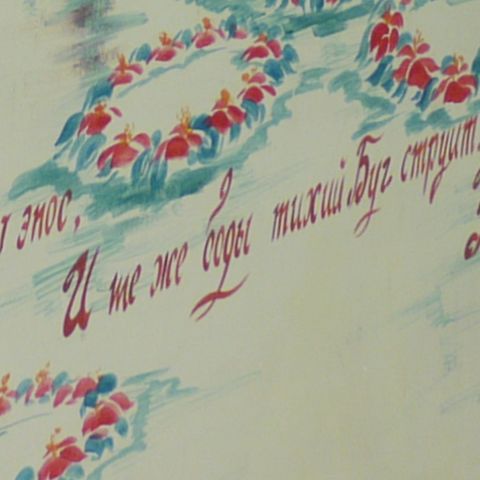 эпос,
И те же воды тихий Буг струит